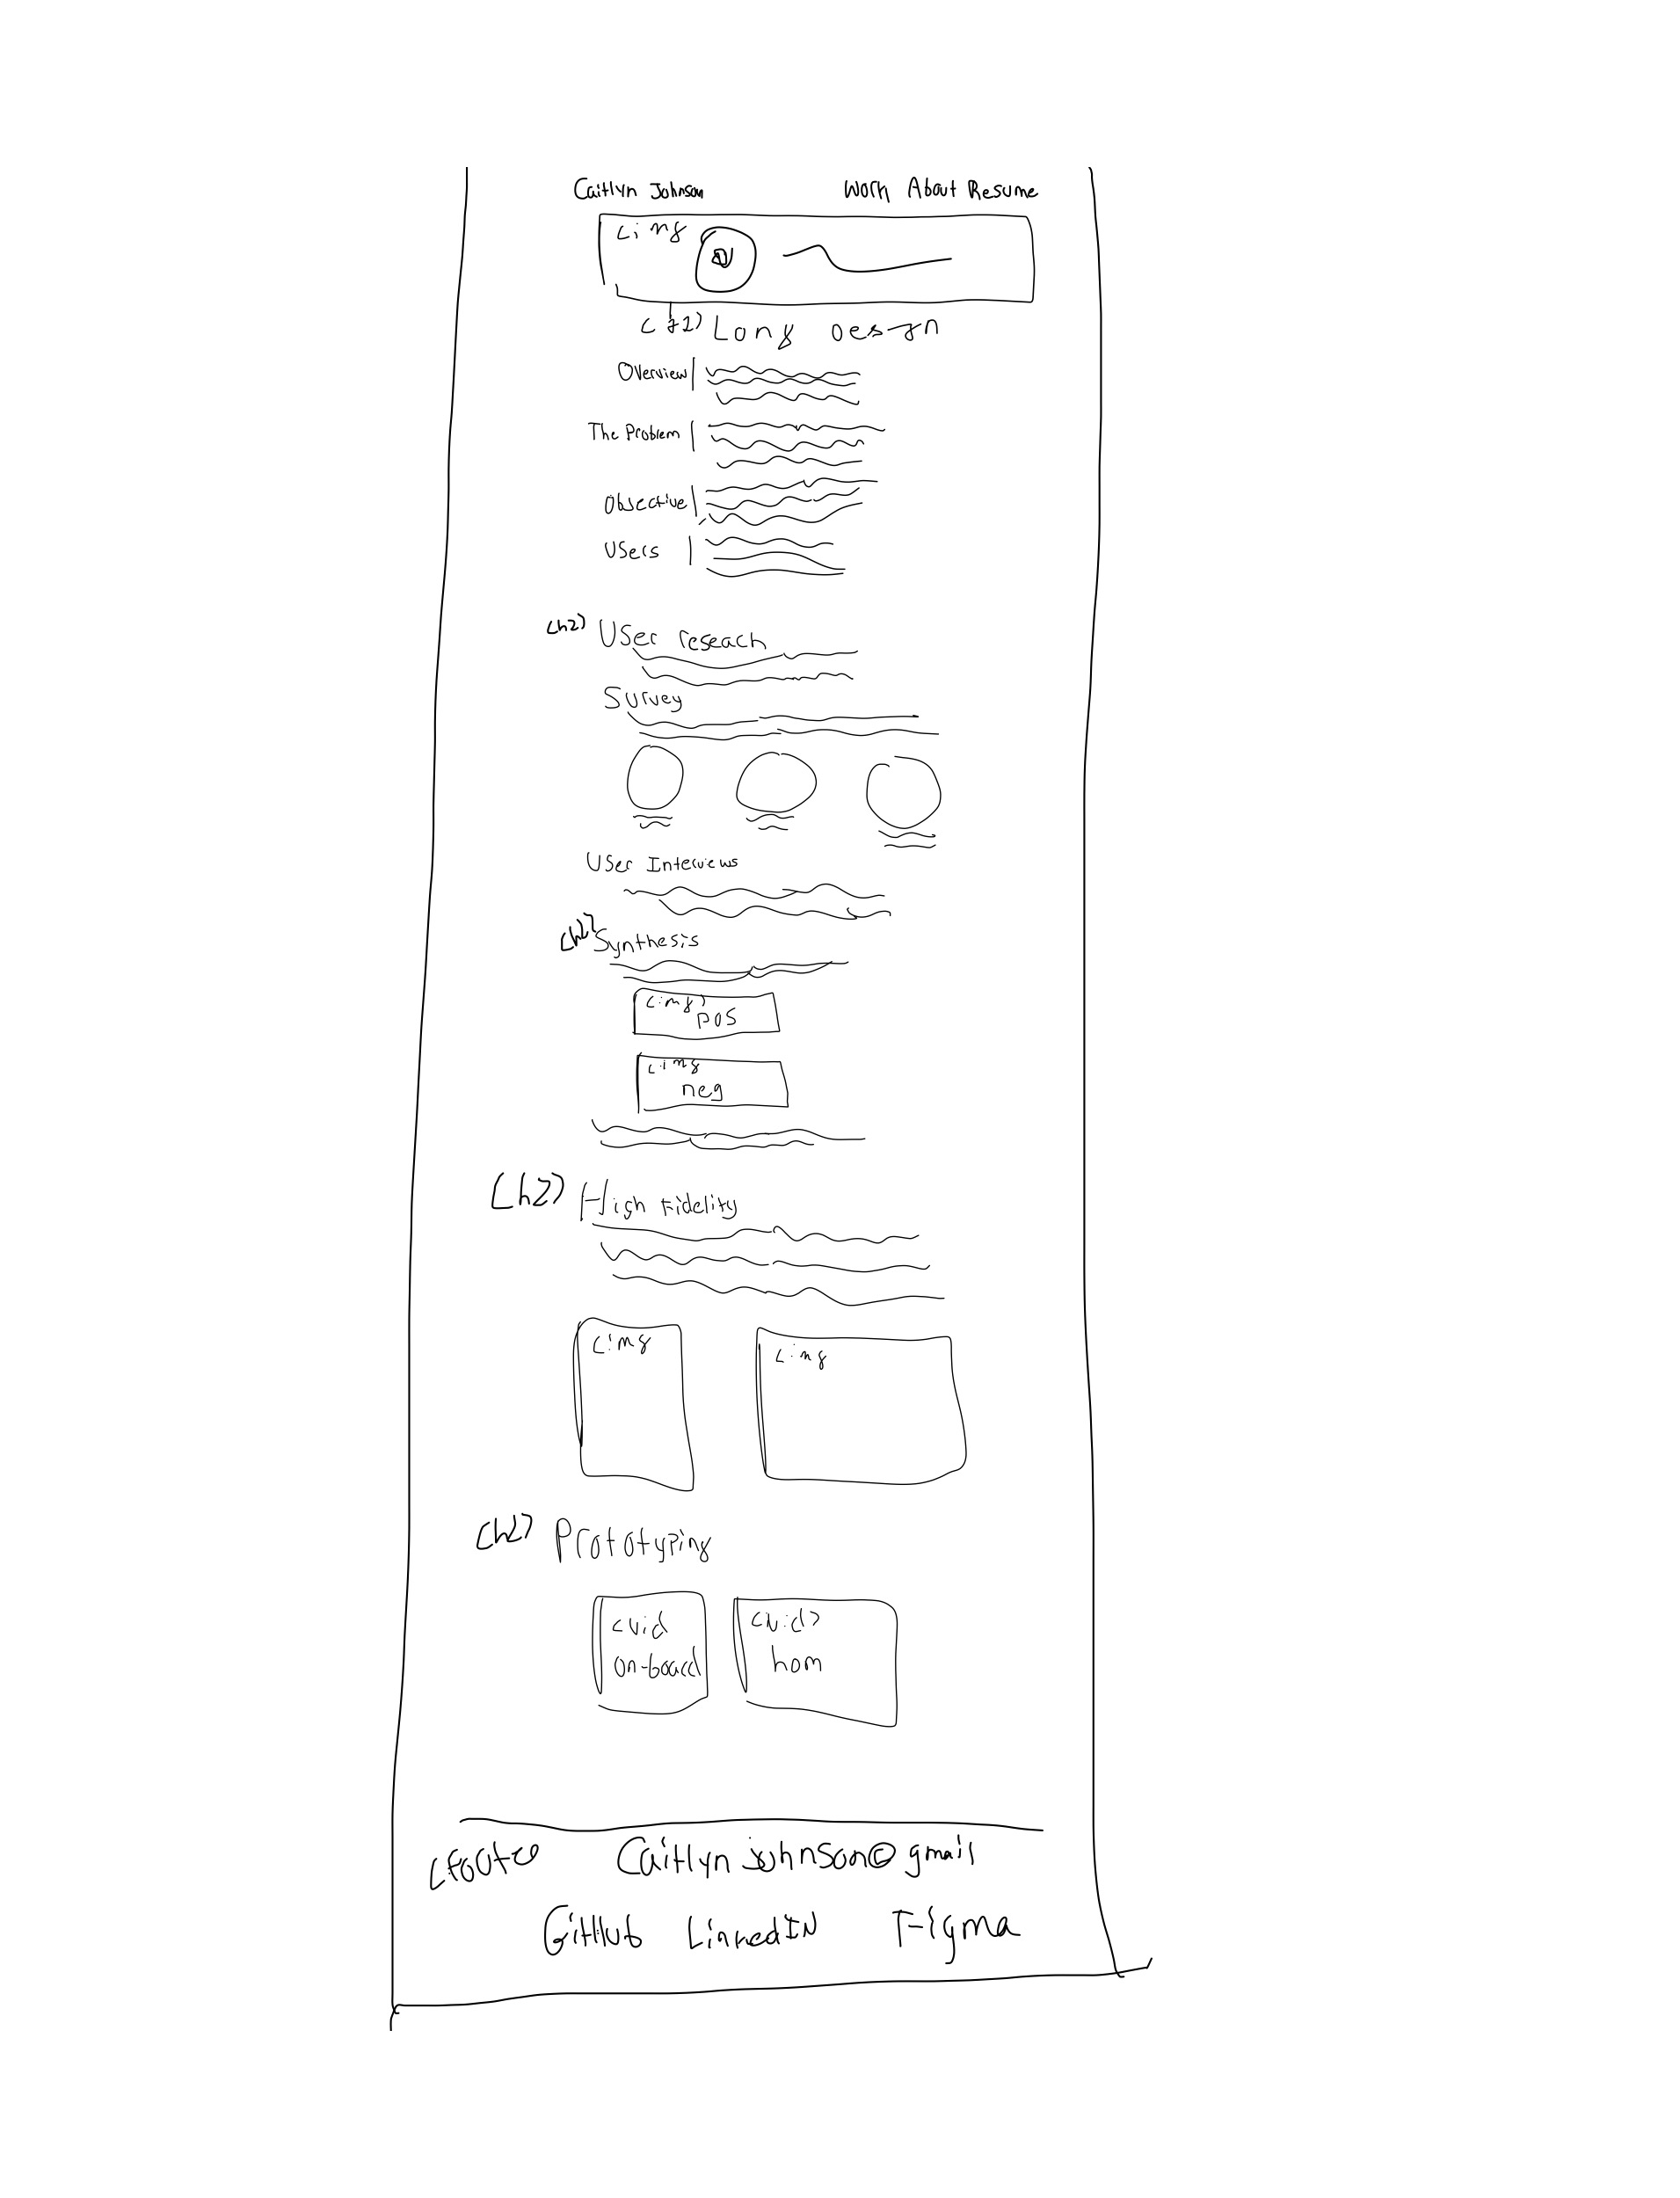 Caitlyn Johnson Work About Resume
<img
<h1> Long Design
Overview|
The Problem |
Objective|
Users |
<h2> User reseach
Survey
User Interviews
<h2> Synthesis
<img>
pos
<img
neg
<h2> High Fidelity
<img <img
<h2> Prototyping
<vid <vid>
on-board hom
<foote Caitlyn johnson@gmail
GitHub LinkedIN Figma